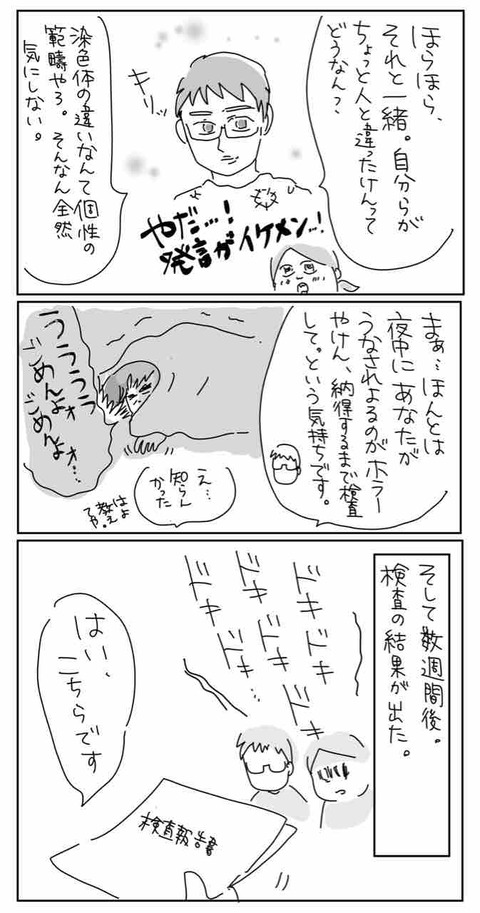 ほらほら、
それと一緒。自分らが
ちょっと人と違ったけんって
どうなん？
キリッ
染色体の違いなんて個性の
範疇やろ。そんなん全然
気にしない。
やだ…！
発言がイケメン…！
まぁ…ほんとは
夜中にあなたが
うなされよるのがホラー
やけん、納得するまで検査
して。という気持ちです。
え…
知らん
かった
はよ
教え
てや。
うううう
ごめんよォ
ごめんよォ…
そして数週間後。
検査の結果が出た。
ドキドキ
ドキドキ
ドキドキ…
ドキドキ
はい、
こちらです
検査報告書